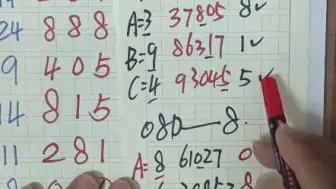 24 888
9 405
815
11 281
A=3 37805 8✓
B=9 86317 1✓
C=4 93045 5✓
080—8.
A=8 61027 0